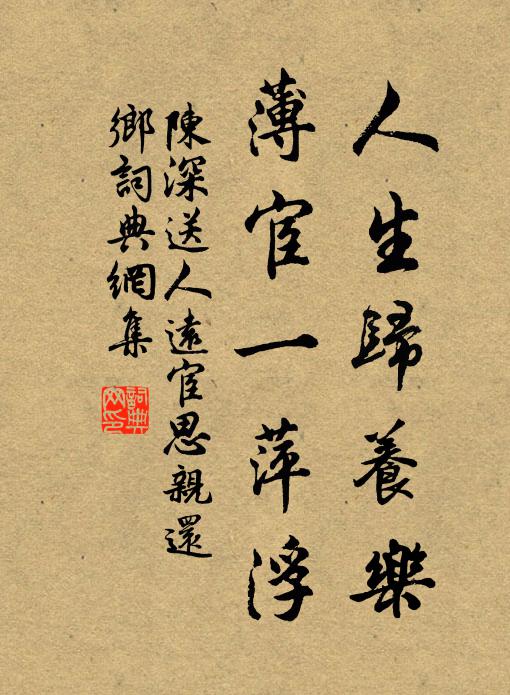 人生歸養樂
薄宦一萍浮
陳深送人遠宦思親還
鄉詞典網集
詞典
网印